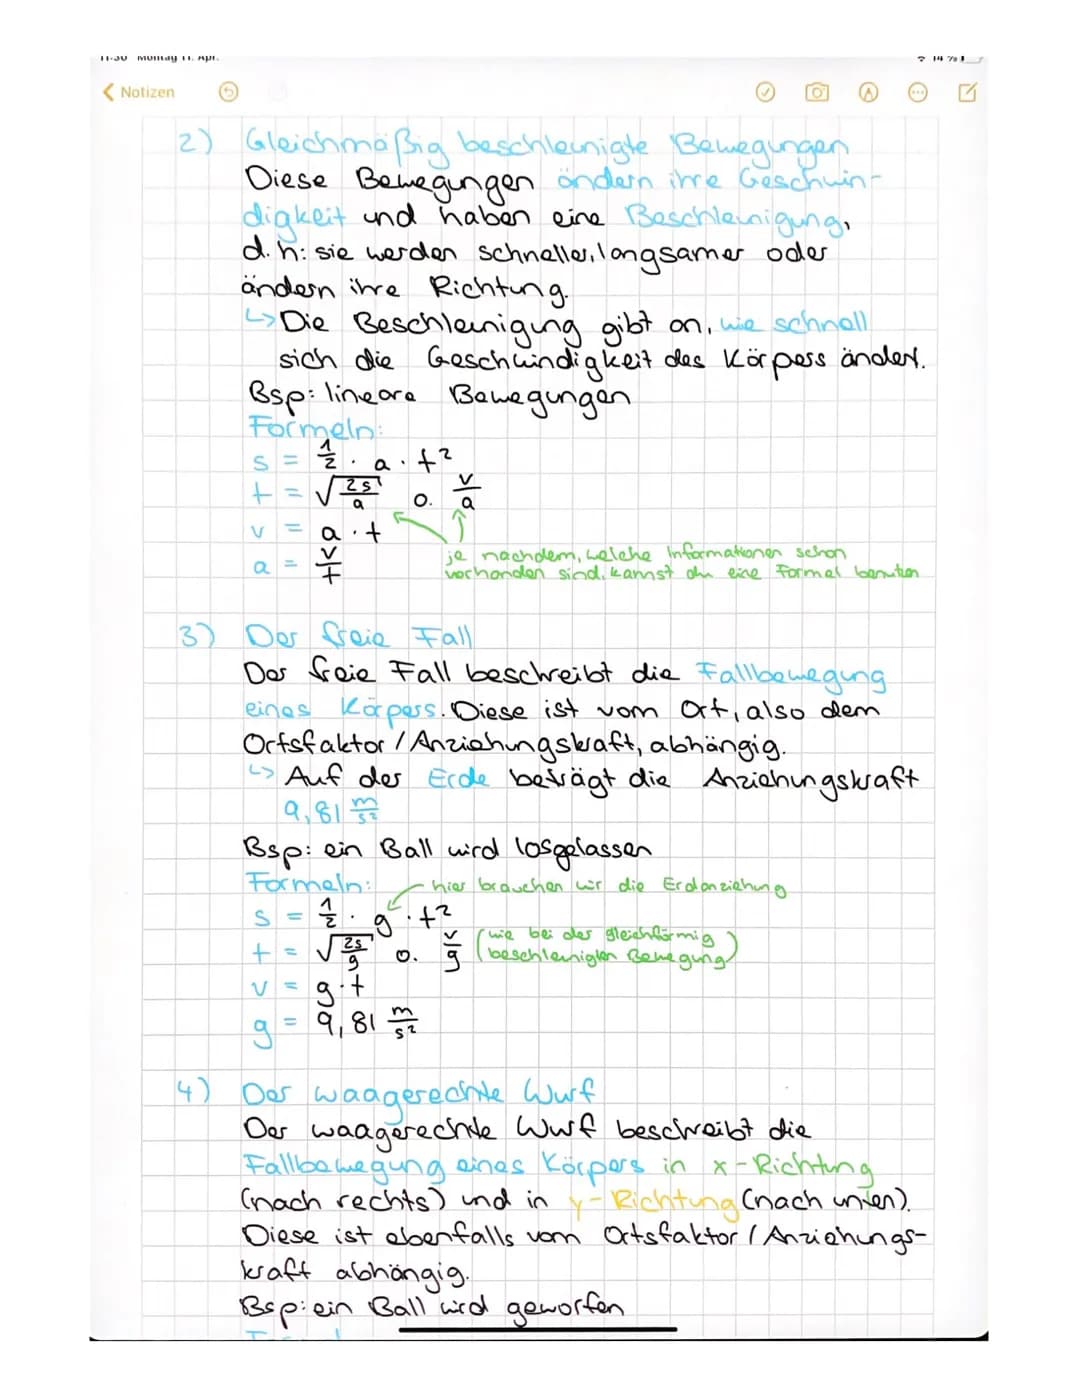 Notizen
2) Gleichmäßig beschleunigte Bewegungen
Diese Bewegungen ändern ihre Geschwin-
digkeit und haben eine Beschleunigung,
d.h: sie werden schneller, langsamer oder
ändern ihre Richtung.
↳ Die Beschleunigung gibt an, wie schnell
sich die Geschwindigkeit des Körpers ändert.
Bsp: lineare Bewegungen
Formeln:
s = 1/2 · a · t²
t = √(2s/a) o. v/a
v = a · t
a = v/t
je nachdem, welche Informationen schon
vorhanden sind, kannst du eine Formel benutzen
3) Der freie Fall
Der freie Fall beschreibt die Fallbewegung
eines Körpers. Diese ist vom Ort, also dem
Ortsfaktor / Anziehungskraft, abhängig.
↳ Auf der Erde beträgt die Anziehungskraft
9,81 m/s²
Bsp: ein Ball wird losgelassen
Formeln: hier brauchen wir die Erdanziehung
s = 1/2 · g · t²
t = √(2s/g) o. v/g (wie bei der gleichförmig
beschleunigten Bewegung)
v = g · t
g = 9,81 m/s²
4) Der waagerechte Wurf
Der waagerechte Wurf beschreibt die
Fallbewegung eines Körpers in x-Richtung
(nach rechts) und in y-Richtung (nach unten).
Diese ist ebenfalls vom Ortsfaktor / Anziehungs-
kraft abhängig.
Bsp: ein Ball wird geworfen